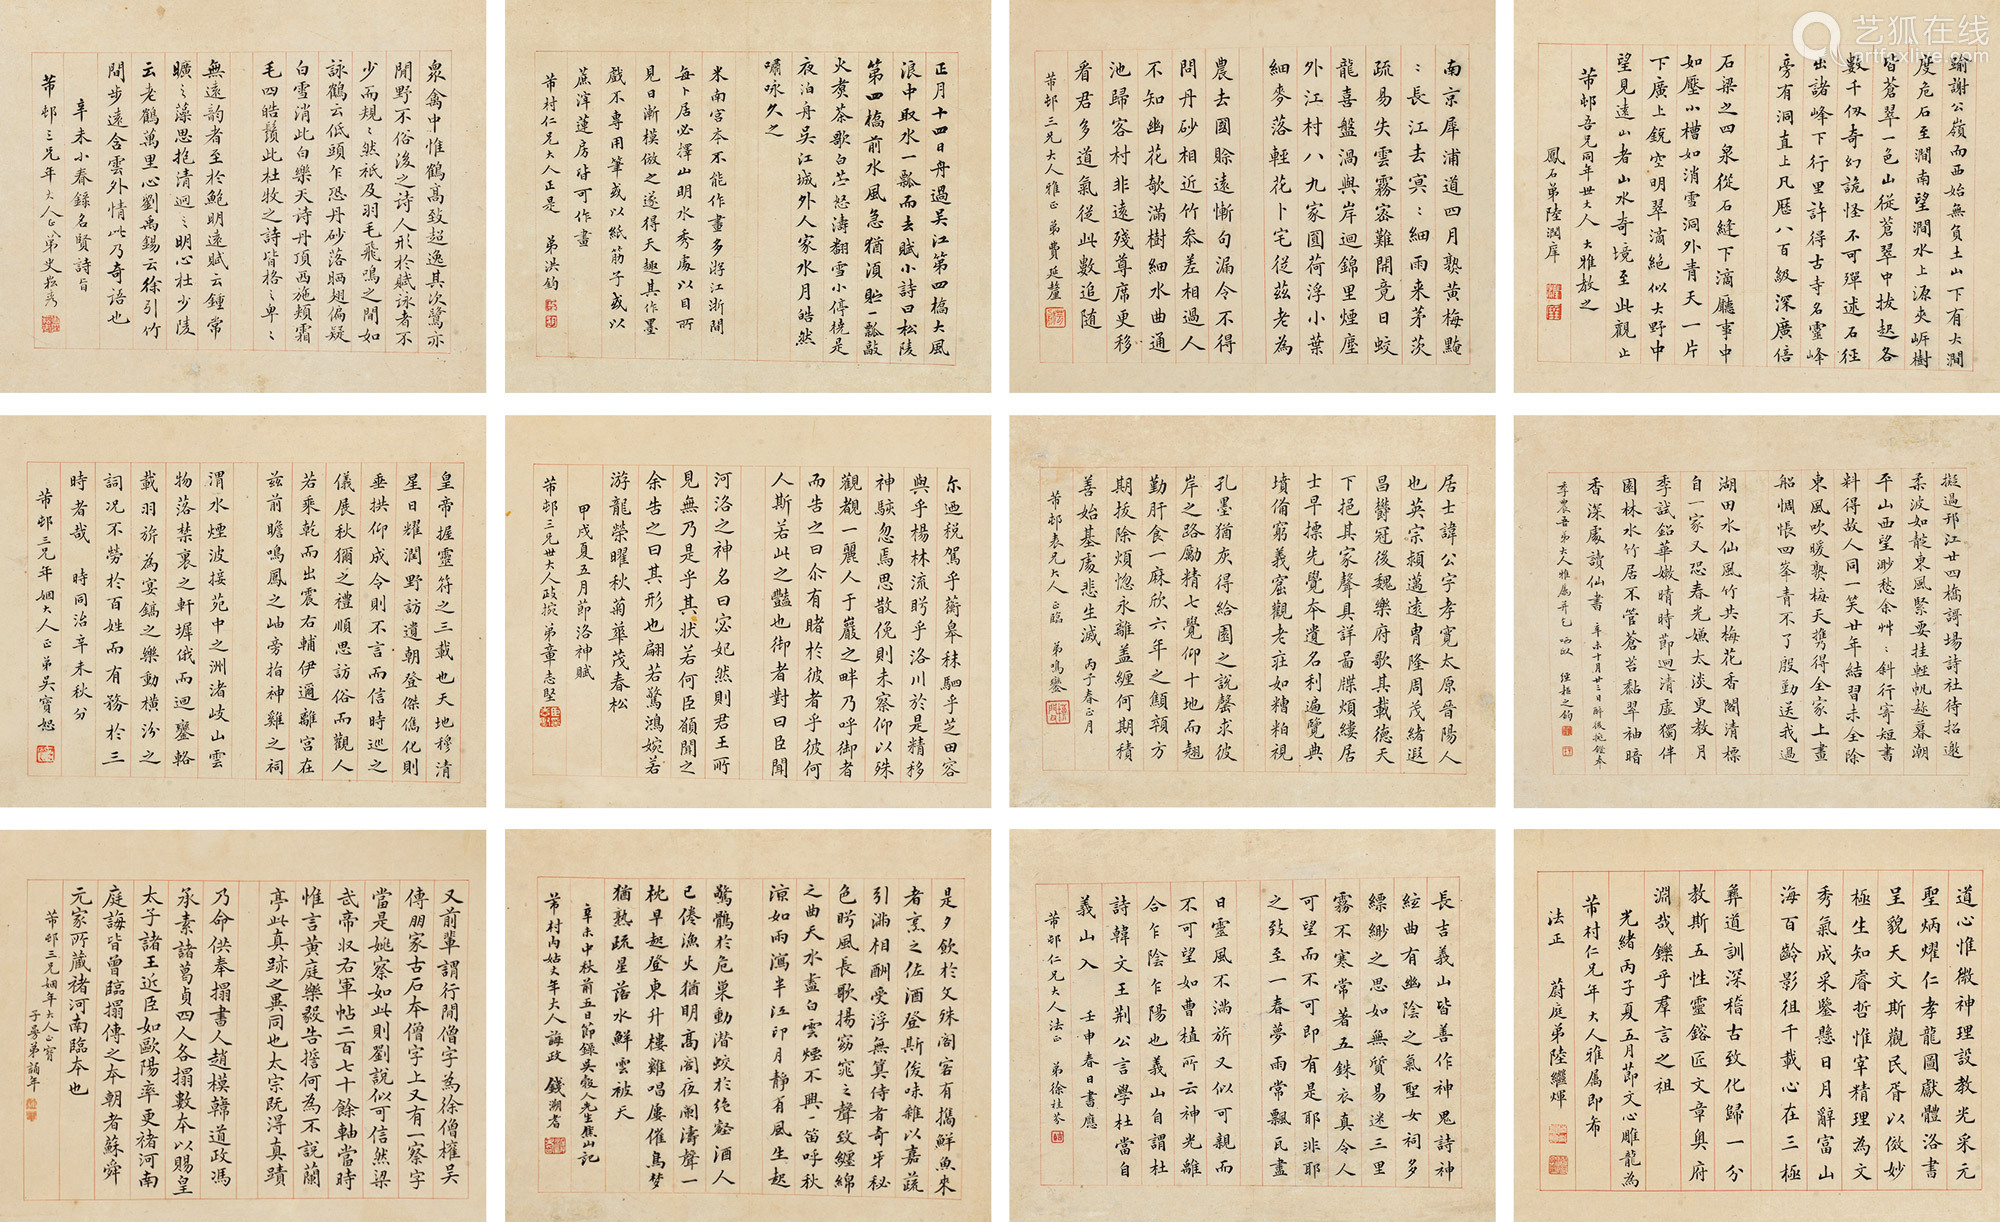 艺狐在线
artfoxlive.com
踰謝公嶺而西始無負土山下有大澗
度危石至澗南望澗水上源夾岍樹
皆蒼翠一色山從蒼翠中拔起各
數千仞奇幻詭怪不可殫述石徑
出諸峰下行里許得古寺名靈峰
旁有洞直上凡歷八百級深廣倍
石梁之四泉從石縫下滴廳事中
如壓小槽如消雪洞外青天一片
下廣上銳空明翠滴絕似大野中
望見遠山者山水奇境至此觀止
芾邨吾兄同年世大人 大雅教之
鳳石弟陸潤庠
南京犀浦道四月熟黃梅黤
〻長江去冥〻細雨来茅茨
疏易失雲霧密難開竟日蛟
龍喜盤渦與岸迴錦里煙塵
外江村八九家圓荷浮小葉
細麥落輕花卜宅從茲老為
農去國賒遠慚句漏令不得
問丹砂相近竹參差相過人
不知幽花欹滿樹細水曲通
池歸客村非遠殘尊席更移
看君多道氣從此數追隨
芾邨三兄大人雅正 弟費延釐
正月十四日舟過吳江第四橋大風
浪中取水一瓢而去賦小詩曰松陵
第四橋前水風急猶須貯一瓢敲
火煑茶歌白苧怒濤翻雪小停橈是
夜泊舟吴江城外人家水月皓然
嘯咏久之
米南宫本不能作畫多游江浙間
每卜居必擇山明水秀處以目所
見日漸模倣之遂得天趣其作墨
戲不專用筆或以紙筋子或以
蔗滓蓮房皆可作畫
芾村仁兄大人正是 弟洪鈞
泉禽中惟鶴高致超逸其次鷺亦
閒野不俗後之詩人形於賦詠者不
少而規〻然衹及羽毛飛鳴之間如
詠鶴云低頭乍恐丹砂落晒翅偏疑
白雪消此白樂天詩丹頂西施頰霜
毛四皓鬚此杜牧之詩皆格〻卑〻
無遠韵者至於鮑明遠賦云鍾常
曠〻藻思抱清迥〻明心杜少陵
云老鶴萬里心劉禹錫云徐引竹
間步遠含雲外情此乃奇語也
辛未小春錄名賢詩旨
芾邨三兄年大人正
擬過邗江廿四橋謌場詩社待招邀
柔波如靛東風緊要挂輕帆趂暮潮
平山西望渺愁余艸〻斜行寄短書
料得故人同一笑廿年結習未全除
東風吹暖熟梅天攜得全家上畫
船惆悵四峯青不了殷勤送我過
湖田水仙風竹共梅花香閣清標
自一家又恐春光嫌太淡更教月
季試鉛華嫩晴時節迴清虛獨伴
園林水竹居不管蒼苔黏翠袖暗
香深處讀仙書
居士諱公字孝寬太原晉陽人
也英宗穎邁遠胄隆周茂緒遐
昌欝冠後魏樂府歌其載德天
下挹其家聲具詳啚牒煩縷居
士早摽先覺本遺名利遍覽典
墳備窮義窟觀老莊如糟粕視
孔墨猶灰得給園之說罄求彼
岸之路勵精七覺仰十地而翹
勤肝食一麻欣六年之顦顇方
期拔除煩惚永離盖纏何期積
善始基處悲生滅 丙子春正月
芾邨表兄大人正臨 弟鳴鑾
尓廼税駕乎蘅皋秣駟乎芝田容
與乎楊林流眄乎洛川於是精移
神駭忽焉思散俛則未察仰以殊
觀覩一麗人于巖之畔乃呼御者
而告之曰尒有睹於彼者乎彼何
人斯若此之豔也御者對曰臣聞
河洛之神名曰宓妃然則君王所
見無乃是乎其状若何臣願聞之
余告之曰其形也翩若驚鴻婉若
游龍榮曜秋菊華茂春松
甲戌夏五月節洛神賦
芾邨三兄世大人政捥弟章志堅
皇帝握靈符之三載也天地穆清
星日耀潤野訪遺朝登傑儁化則
垂拱仰成令則不言而信時巡之
儀展秋獮之禮順思訪俗而觀人
若乘乾而出震右輔伊邇離宮在
茲前瞻鳴鳳之岫旁指神雞之祠
渭水煙波接苑中之洲渚岐山雲
物落禁裏之軒墀俄而迴鑾輅
載羽旂為宴鎬之樂動橫汾之
詞况不勞於百姓而有務於三
時者哉 時同治辛未秋分
芾邨三兄年姻大人正弟吴寳恕
道心惟微神理設教光采元
聖炳燿仁孝龍圖獻體洛書
呈貌天文斯觀民胥以倣妙
極生知睿哲惟宰精理為文
秀氣成采鑒懸日月辭富山
海百齡影徂千載心在三極
彝道訓深稽古致化歸一分
教斯五性靈鎔匠文章奥府
淵哉鑠乎羣言之祖
光緒丙子夏五月節文心雕龍為
芾村仁兄年大人雅屬即布
法正 蔚庭弟陸繼煇
長吉義山皆善作神鬼詩神
絃曲有幽陰之氣聖女祠多
縹緲之思如無質易迷三里
霧不寒常著五銖衣真令人
可望而不可即有是耶非耶
之致至一春夢雨常飄瓦盡
日靈風不滿旂又似可親而
不可望如曹植所云神光離
合乍陰乍陽也義山自謂杜
詩韓文王荆公言學杜當自
義山入 壬申春日書應
芾邨仁兄大人法正 弟徐桂芬
是夕飲於文殊閣客有攜鮮魚来
者烹之佐酒登斯俊味雜以嘉蔬
引滿相酬受浮無筭侍者奇牙秘
色眄風長歌揚窈窕之聲致纏綿
之曲天水盡白雲煙不興一笛呼秋
涼如雨瀉半江印月靜有風生起
驚鶻於危巢動潜蛟於绝壑酒人
已倦漁火猶明高閣夜闌濤聲一
枕早起登東升樓雞唱屢催鳥夢
猶熟疏星落水鮮雲被天
辛未中秋前五日節錄吴穀人先生焦山記
芾村内姑丈年大人誨政 錢溯耆
又前輩謂行間僧字為徐僧權吴
傳朋家古石本僧字上又有一察字
當是姚察如此則劉說似可信然梁
武帝収右軍帖二百七十餘軸當時
惟言黄庭樂毅告誓何為不說蘭
亭此真跡之異同也太宗既淂真蹟
乃命供奉搨書人趙模韓道政馮
承素諸葛貞四人各搨數本以賜皇
太子諸王近臣如歐陽率更褚河南
庭誨皆曾臨搨傳之本朝者蘇舜
元家所藏褚河南臨本也
芾邨三兄姻年大人正寳